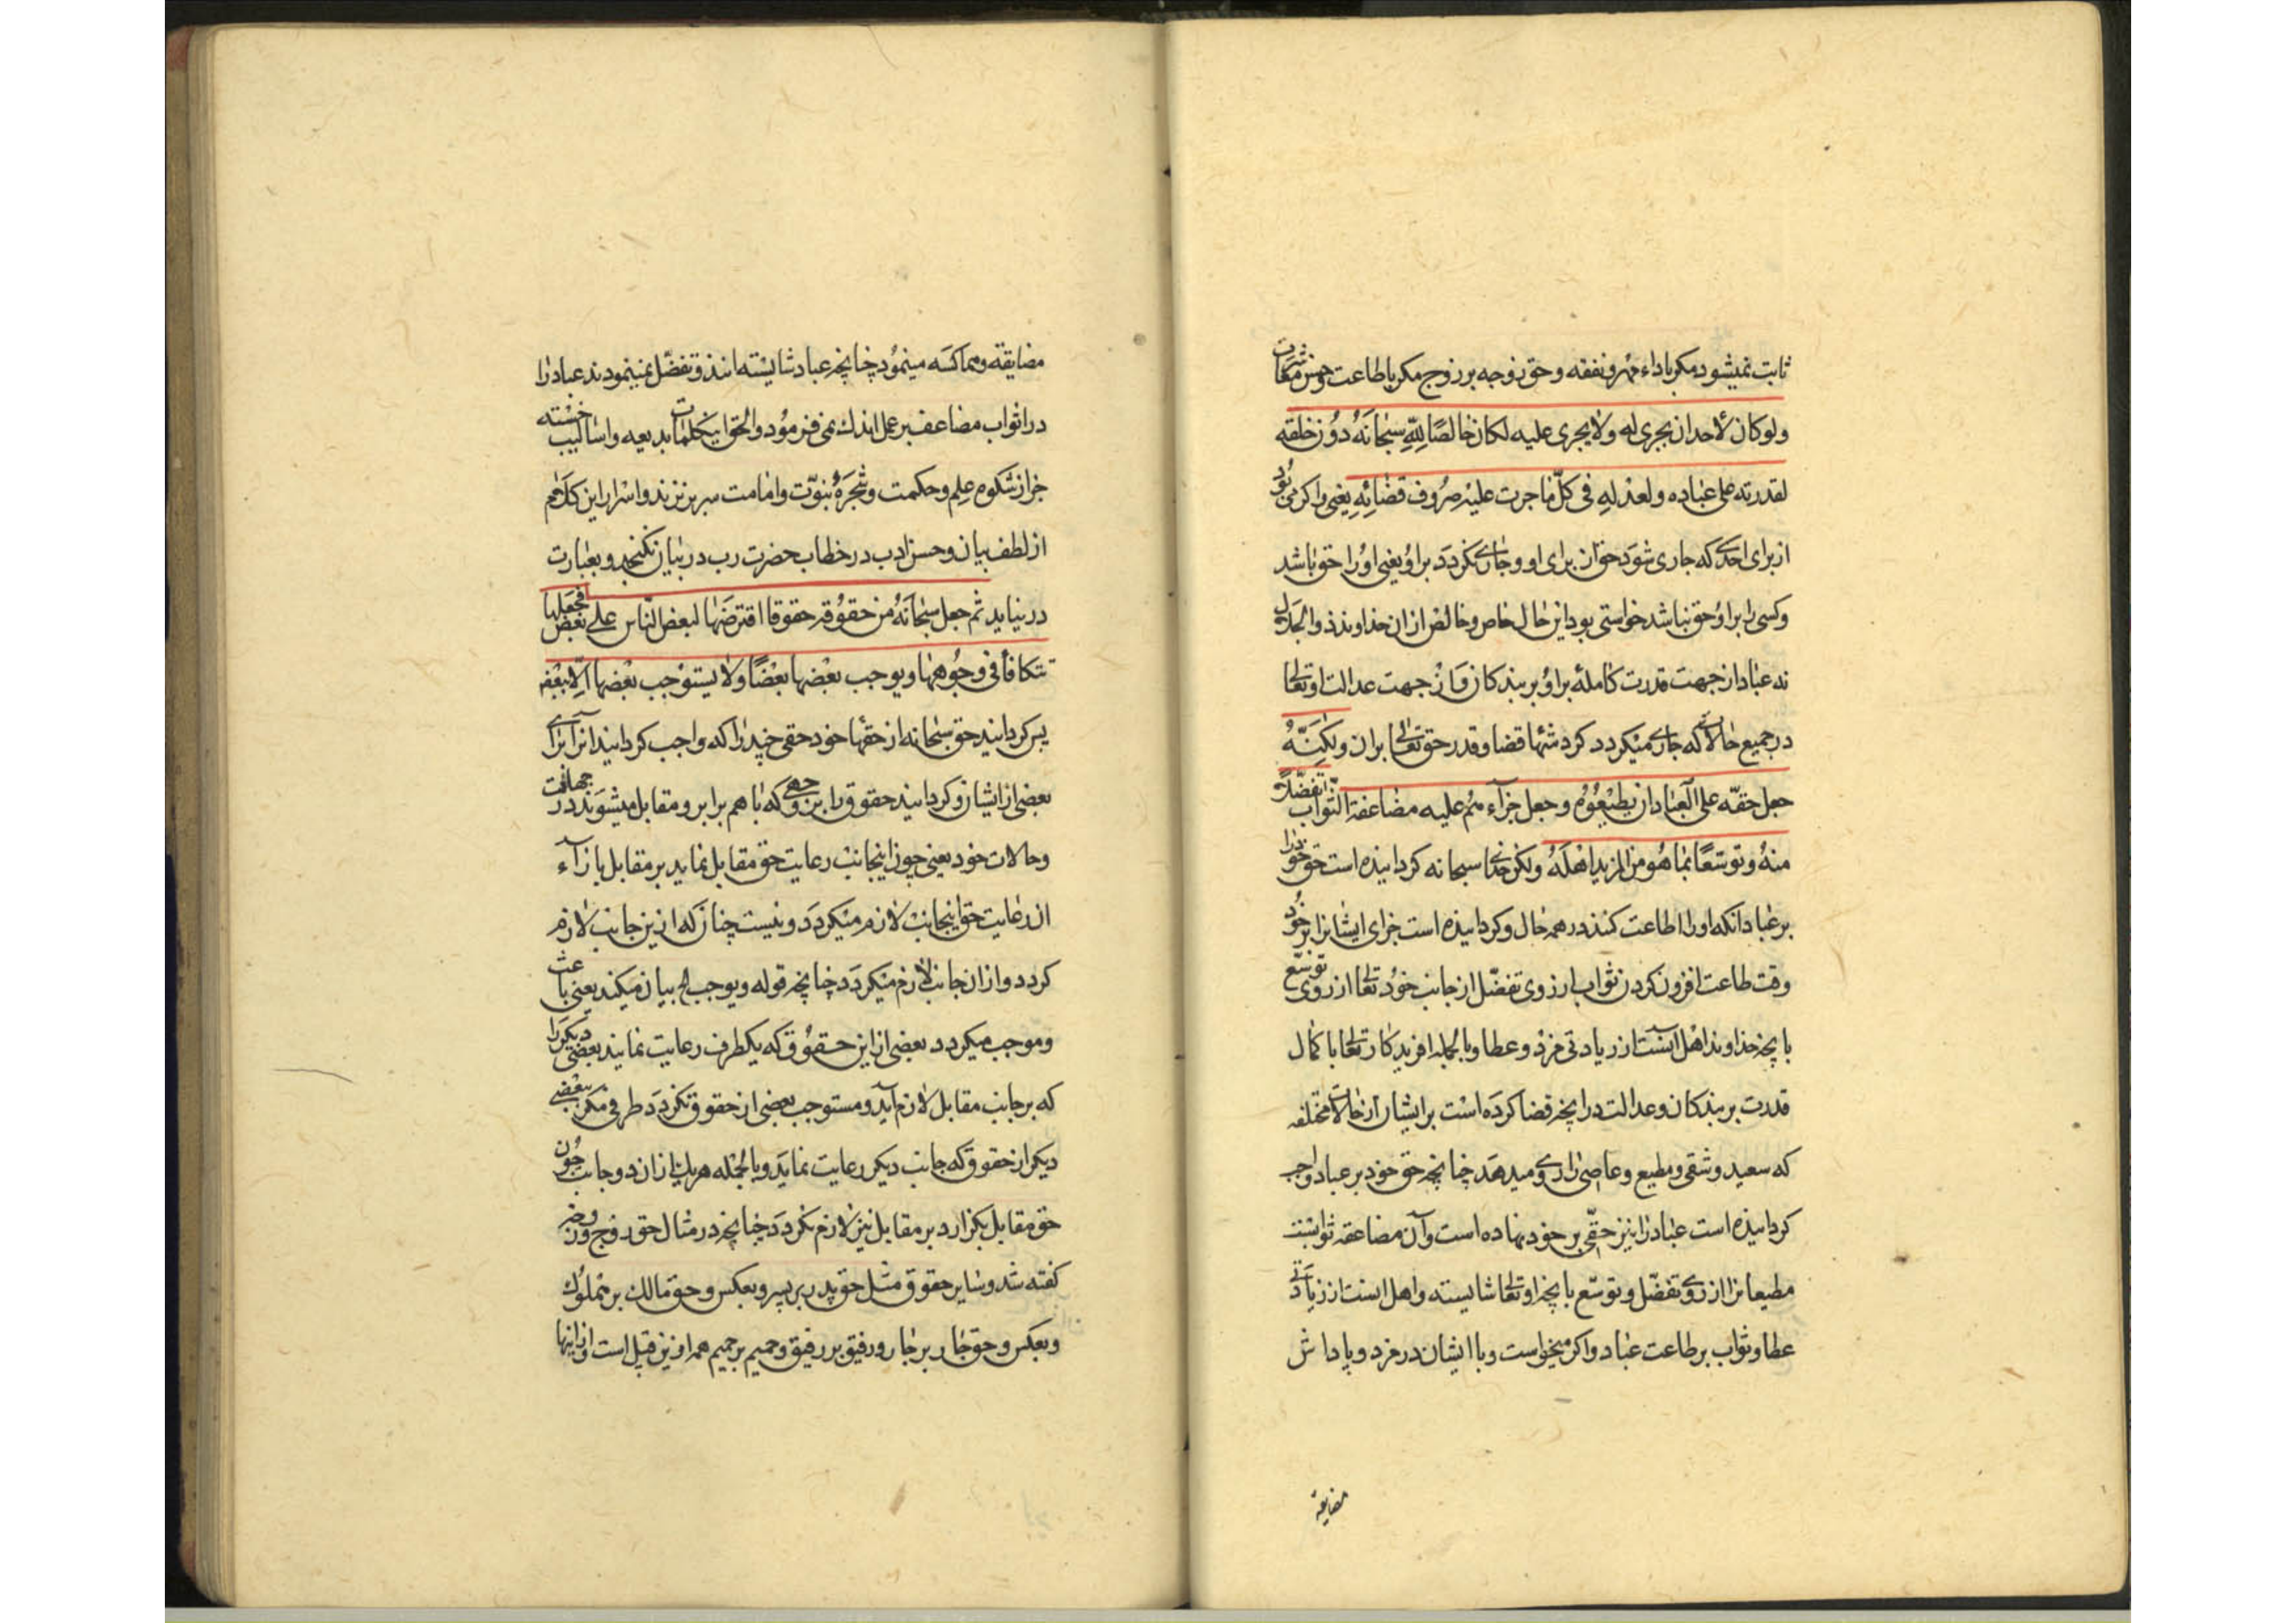 ثابت نمیشود مکر باداء مهر و نفقه و حق زوجه بر زوج مکر باطاعت و حسن معاشرت
ولو کان لأحد ان یجری له ولا یجری علیه لکان خالصًا لِلّهِ سبحانَهُ دُون خلقه
لقدرته علی عباده ولعدلهِ فی کلّ ما جرت علیه صُرُوف قضائِهِ یعنی و اکر می بُود
از برای احدی که جاری شوَد حق ان برای او و جاری نکردَد بر اوُ یعنی اوُ را حق باشد
و کسی را بر اوُ حق نباشد خواستی بود این حال خاص و خالص از ان خداوند ذو الجَدل
نه عباد از جهت قدرت کامله اوُ بر بندکان و از جهت عدالت او تعالی
در جمیع حالاتی که جاری میکردد کردشها قضا و قدر حق تعالی بران ولکِنَّهُ
جعل حقّه علی العباد ان یطیعُوُه وجعل جزآءهم علیه مضاعفة الثّواب تفضّلاً
منهُ وتوسّعًا بما هُو من المزید اهْلَهُ ولکن خدای سبحانه کردانیده است حق خود را
بر عباد انکه او را اطاعت کنند در همه حال و کردانیده است جزای ایشانرا بر خُود
وقت طاعت افزون کردن ثواب از روی تفضّل از جانب خوُد تعالی از روی توسّع
بانچه خداوند اهل آنست از زیادتی مزد و عطا و بالجمله افریدکار تعالی با کمال
قدرت بر بندکان و عدالت در انچه قضا کردَه است بر ایشان از حالات مختلفه
که سعید و شقی و مطیع و عاصی را روی میدهَد چنانچه حق خود بر عباد واجب
کردانیده است عباد را نیز حقّی بر خود نهاده است و آن مضاعفه ثوابست
مطیعانرا از روی تفضّل و توسّع بانچه او تعالی شایسته و اهل انست از زیادَتی
عطا و ثواب بر طاعت عباد و اکر میخواست و با ایشان در مزد و پاداش
مضایقه
مضایقه و مماکسَه مینموُد چنانچه عباد شایسته انند و تفضّل نمینمودند عباد را
در اثواب مضاعف بر عمل اندک نمی فرموُد والحق اینکلمات بدیعه و اسالیب خجسته
جز از مشکوه عِلم و حکمت و شجَرَهٔ نبوّت و امامت سر بر نزند و اسرار این کلام
از لطف بیان و حسن ادب در خطاب حضرت رب در بیان نکنجد و بعبارت
در نیاید ثم جعل سبحانَهُ من حقوُقه حقوقا افترضَها لبعض النّاس علی بعض فجعلها
تتکافأ فی وجُوهها و یوجب بعْضها بعْضًا ولا یستوْجب بعْضها الّا ببعْض
پس کردانید حق سبحانه از حقّها خود حقی چند را که واجب کردانید آنرا برای
بعضی از ایشان و کردانید حقوق را بر وجهی که با هم برابر و مقابل میشوَند در جهات
و حالات خود یعنی چون اینجانب رعایت حق مقابل نماید بر مقابل بازآء
ان رعایت حق اینجانب لازم میکردَد و نیست چنان که ازین جانب لازم
کردد و از ان جانب لازم نکردَد چنانچه قوله و یوجب الخ بیان میکند یعنی باعث
و موجب میکردد بعضی از این حقوُق که یکطرف رعایت نمایند بعضی دیکر را
که بر جانب مقابل لازم آید و مستوجب بعضی از حقوق نکردَد طرفی مکر ببعضی
دیکر از حقوق که جانب دیکر رعایت نمایَد و بالجمْله هر یک از ان دو جانب چُون
حق مقابل بکزارد بر مقابل نیز لازم کردَد چنانچه در مثال حق زوج و زوجه
کفته شد و سایر حقوق مثل حق پدر بر پسر و بعکس و حق مالک بر مملوک
و بعکس و حق جار بر جار و رفیق بر رفیق و حمیم بر حمیم همه ازین قبیل است و از اینها